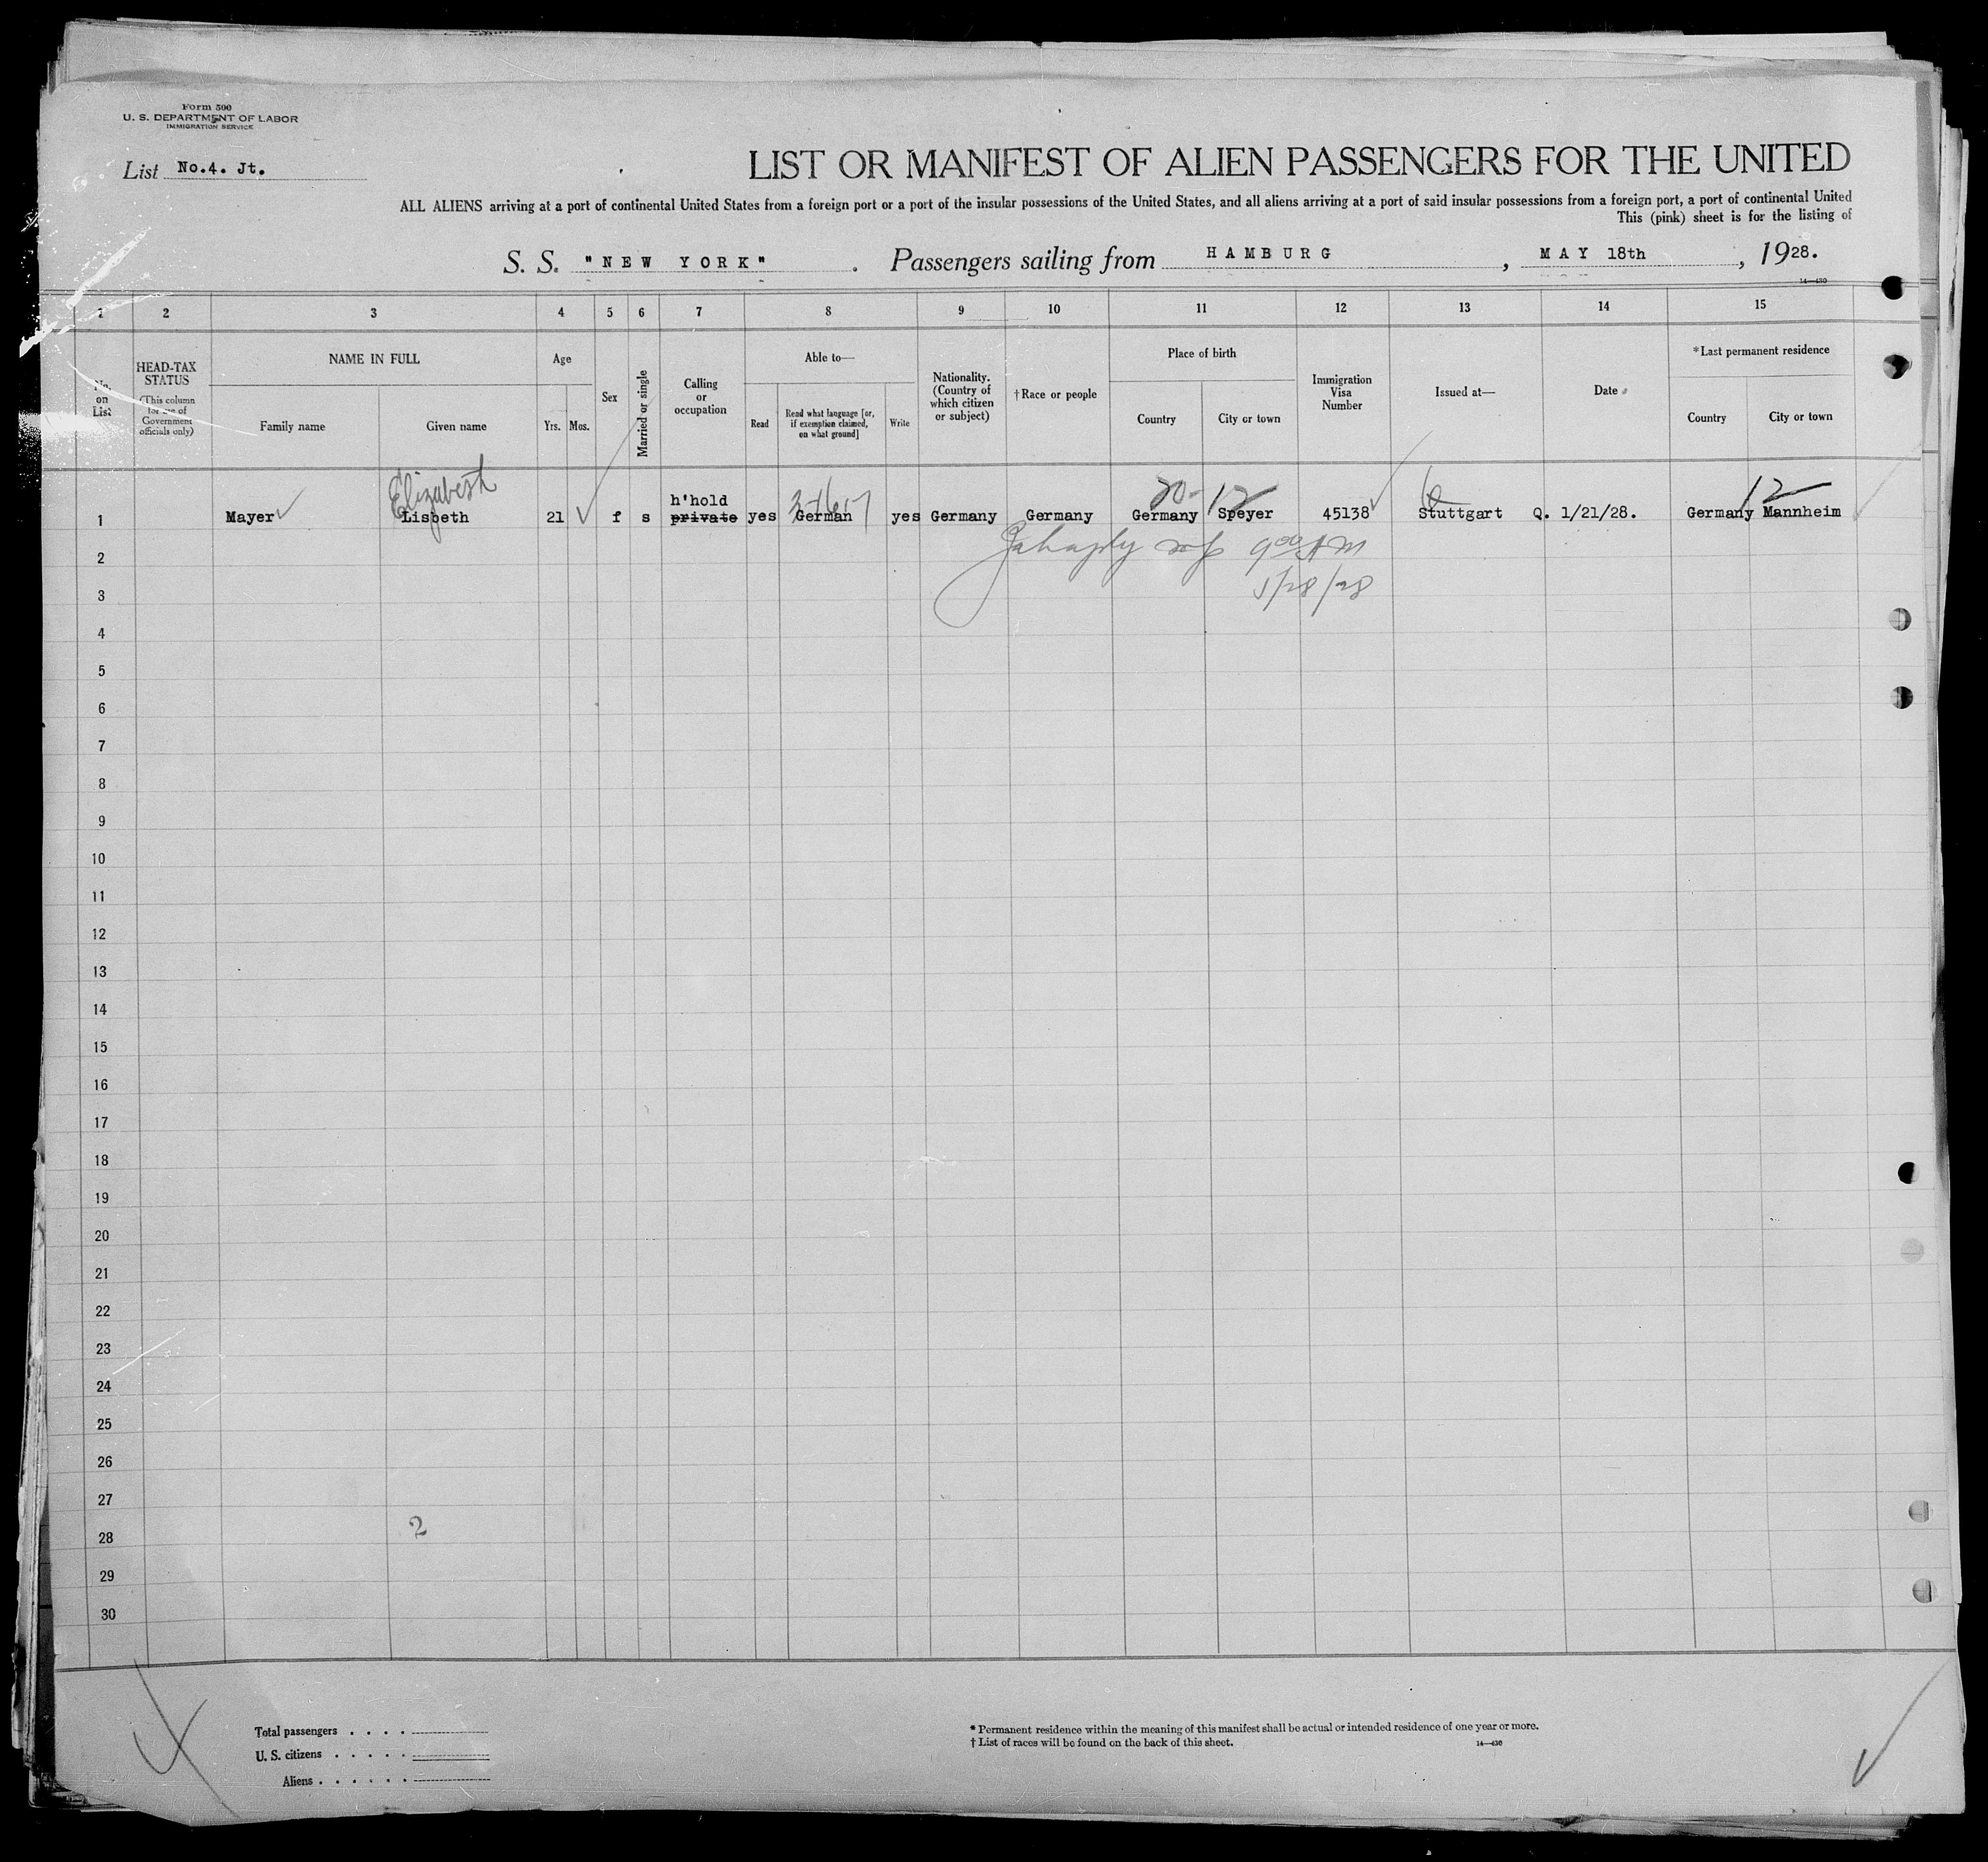 Form 500
U. S. DEPARTMENT OF LABOR
IMMIGRATION SERVICE
List No.4. Jt.
LIST OR MANIFEST OF ALIEN PASSENGERS FOR THE UNITED
ALL ALIENS arriving at a port of continental United States from a foreign port or a port of the insular possessions of the United States, and all aliens arriving at a port of said insular possessions from a foreign port, a port of continental United
This (pink) sheet is for the listing of
S. S. "NEW YORK" . Passengers sailing from HAMBURG , MAY 18th , 1928.
14—430
1 2 3 4 5 6 7 8 9 10 11 12 13 14 15
No. on List
HEAD-TAX STATUS
(This column for use of Government officials only)
NAME IN FULL
Family name
Given name
Age
Yrs.
Mos.
Sex
Married or single
Calling or occupation
Able to—
Read
Read what language [or, if exemption claimed, on what ground]
Write
Nationality. (Country of which citizen or subject)
†Race or people
Place of birth
Country
City or town
Immigration Visa Number
Issued at—
Date
*Last permanent residence
Country
City or town
Elizabeth
20- 12
12
h'hold
1 Mayer Lisbeth 21 f s private yes German yes Germany Germany Germany Speyer 45138 Stuttgart Q. 1/21/28. Germany Mannheim
9 00 AM
5/28/28
2
3
4
5
6
7
8
9
10
11
12
13
14
15
16
17
18
19
20
21
22
23
24
25
26
27
2
28
29
30
Total passengers . . . .
U. S. citizens . . . . .
Aliens . . . . . .
* Permanent residence within the meaning of this manifest shall be actual or intended residence of one year or more.
† List of races will be found on the back of this sheet.
14—430